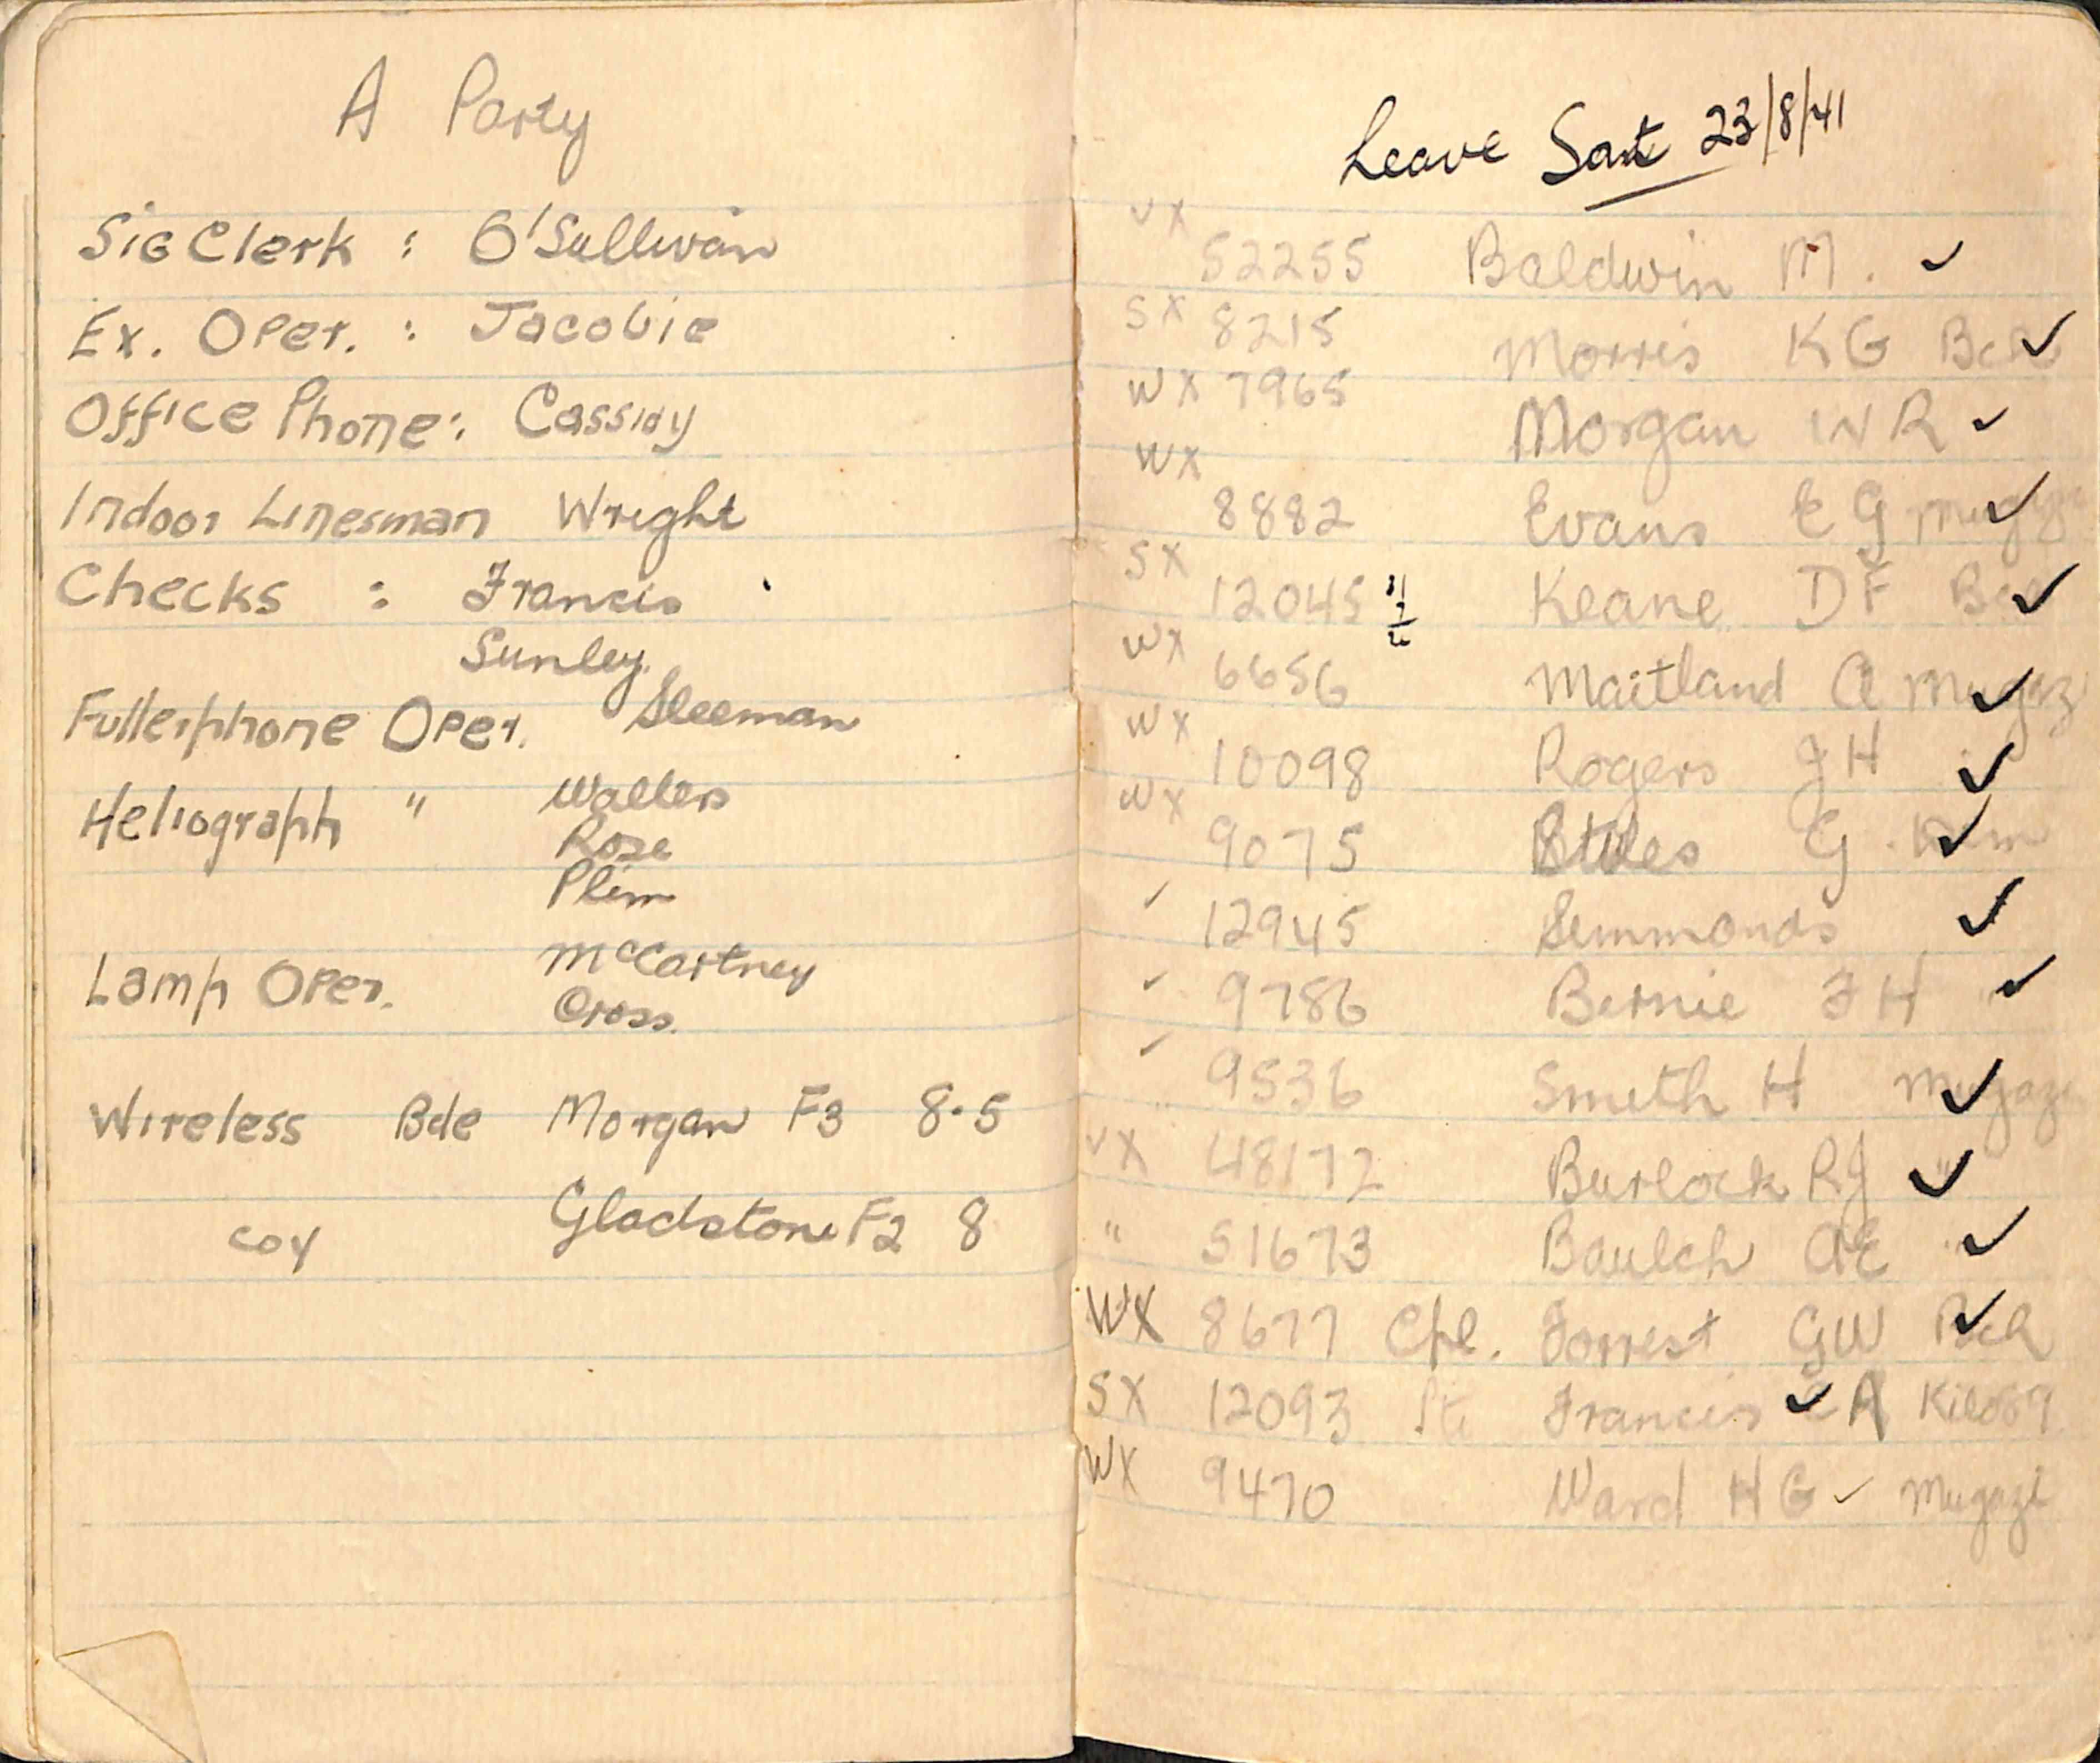 A Party
Sig Clerk : O'Sullivan
Ex. Oper. : Jacobie
Office Phone : Cassidy
Indoor Linesman Wright
Checks : Francis
Sunley.
Fullerphone Oper. Sleeman
Heliograph " Wallers
Rose
Plim
Lamp Oper. McCartney
Cross.
Wireless Bde Morgan F3 8.5
Coy Gladstone F2 8
Leave Sat 23/8/41
VX 52255 Baldwin M. ✓
SX 8215 Morris KG ✓
WX 7965 Morgan W R ✓
WX 8882 Evans E G ✓
SX 12045 Keane DF ✓
WX 6656 Maitland A Mugazi ✓
WX 10098 Rogers JH ✓
WX 9075 G ✓
✓ 12945 Simmonds ✓
✓ 9786 Bernie FH ✓
✓ 9536 Smith H Mugazi ✓
VX 48172 Burlock RJ ✓
" 51673 Baulch AE ✓
WX 8677 Cpl. Forrest GW ✓
SX 12093 Pte Francis ✓ A
WX 9470 Ward HG ✓ Mugazi